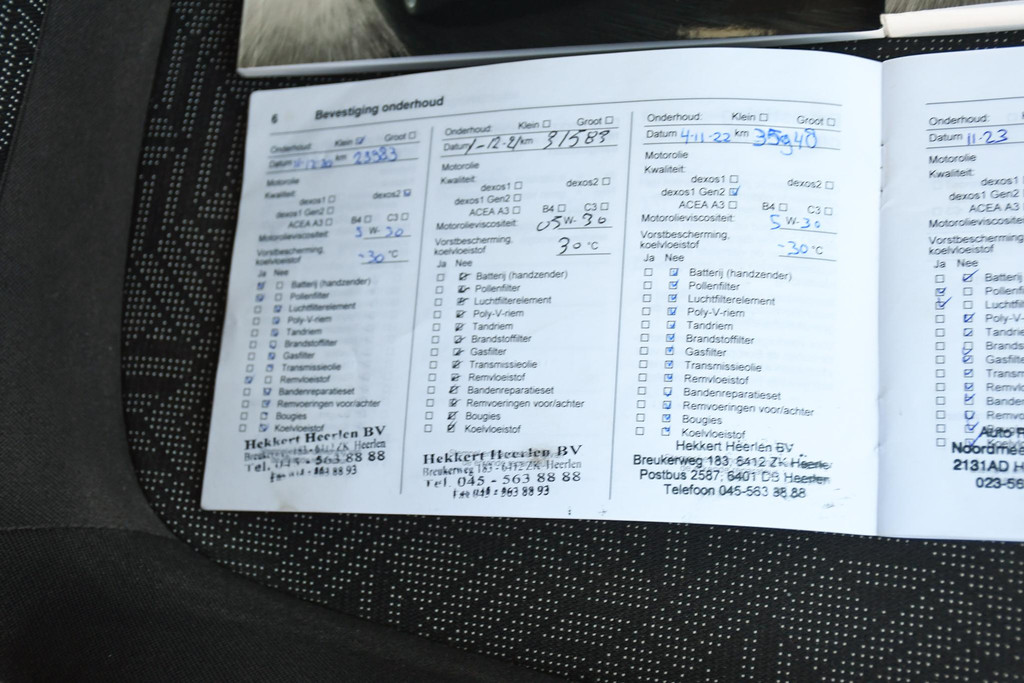 6 Bevestiging onderhoud
Onderhoud: Klein Groot
Datum km 23983
Motorolie
Kwaliteit: dexos1 dexos2
dexos1 Gen2
ACEA A3 B4 C3
Motorolieviscositeit: 5 W-30
Vorstbescherming,
koelvloeistof -30 °C
Ja Nee
Batterij (handzender)
Pollenfilter
Luchtfilterelement
Poly-V-riem
Tandriem
Brandstoffilter
Gasfilter
Transmissieolie
Remvloeistof
Bandenreparatieset
Remvoeringen voor/achter
Bougies
Koelvloeistof
Hekkert Heerlen BV
Breukerweg 183 - 6412 ZK Heerlen
Tel. 045 - 563 88 88
Fax 045 - 563 88 93
Onderhoud: Klein Groot
Datum 1-12-21 km 31583
Motorolie
Kwaliteit:
dexos1 dexos2
dexos1 Gen2
ACEA A3 B4 C3
Motorolieviscositeit: 05 W-30
Vorstbescherming,
koelvloeistof 30 °C
Ja Nee
Batterij (handzender)
Pollenfilter
Luchtfilterelement
Poly-V-riem
Tandriem
Brandstoffilter
Gasfilter
Transmissieolie
Remvloeistof
Bandenreparatieset
Remvoeringen voor/achter
Bougies
Koelvloeistof
Hekkert Heerlen BV
Breukerweg 183 - 6412 ZK Heerlen
Tel. 045 - 563 88 88
Fax 045 - 563 88 93
Onderhoud: Klein Groot
Datum 4-11-22 km 35940
Motorolie
Kwaliteit:
dexos1 dexos2
dexos1 Gen2
ACEA A3 B4 C3
Motorolieviscositeit: 5 W-30
Vorstbescherming,
koelvloeistof -30 °C
Ja Nee
Batterij (handzender)
Pollenfilter
Luchtfilterelement
Poly-V-riem
Tandriem
Brandstoffilter
Gasfilter
Transmissieolie
Remvloeistof
Bandenreparatieset
Remvoeringen voor/achter
Bougies
Koelvloeistof
Hekkert Heerlen BV
Breukerweg 183, 6412 ZK Heerlen
Postbus 2587, 6401 DB Heerlen
Telefoon 045-563 88 88
Onderhoud:
Datum 11-23
Motorolie
Kwaliteit:
dexos1
dexos1 Gen2
ACEA A3
Motorolieviscositeit
Vorstbescherming
koelvloeistof
Ja Nee
Batterij
Pollenfi
Luchtfil
Poly-V-
Tandrie
Brands
Gasfilte
Transm
Remvlo
Banden
Remvo
Auto
Noordmee
2131AD H
023-56